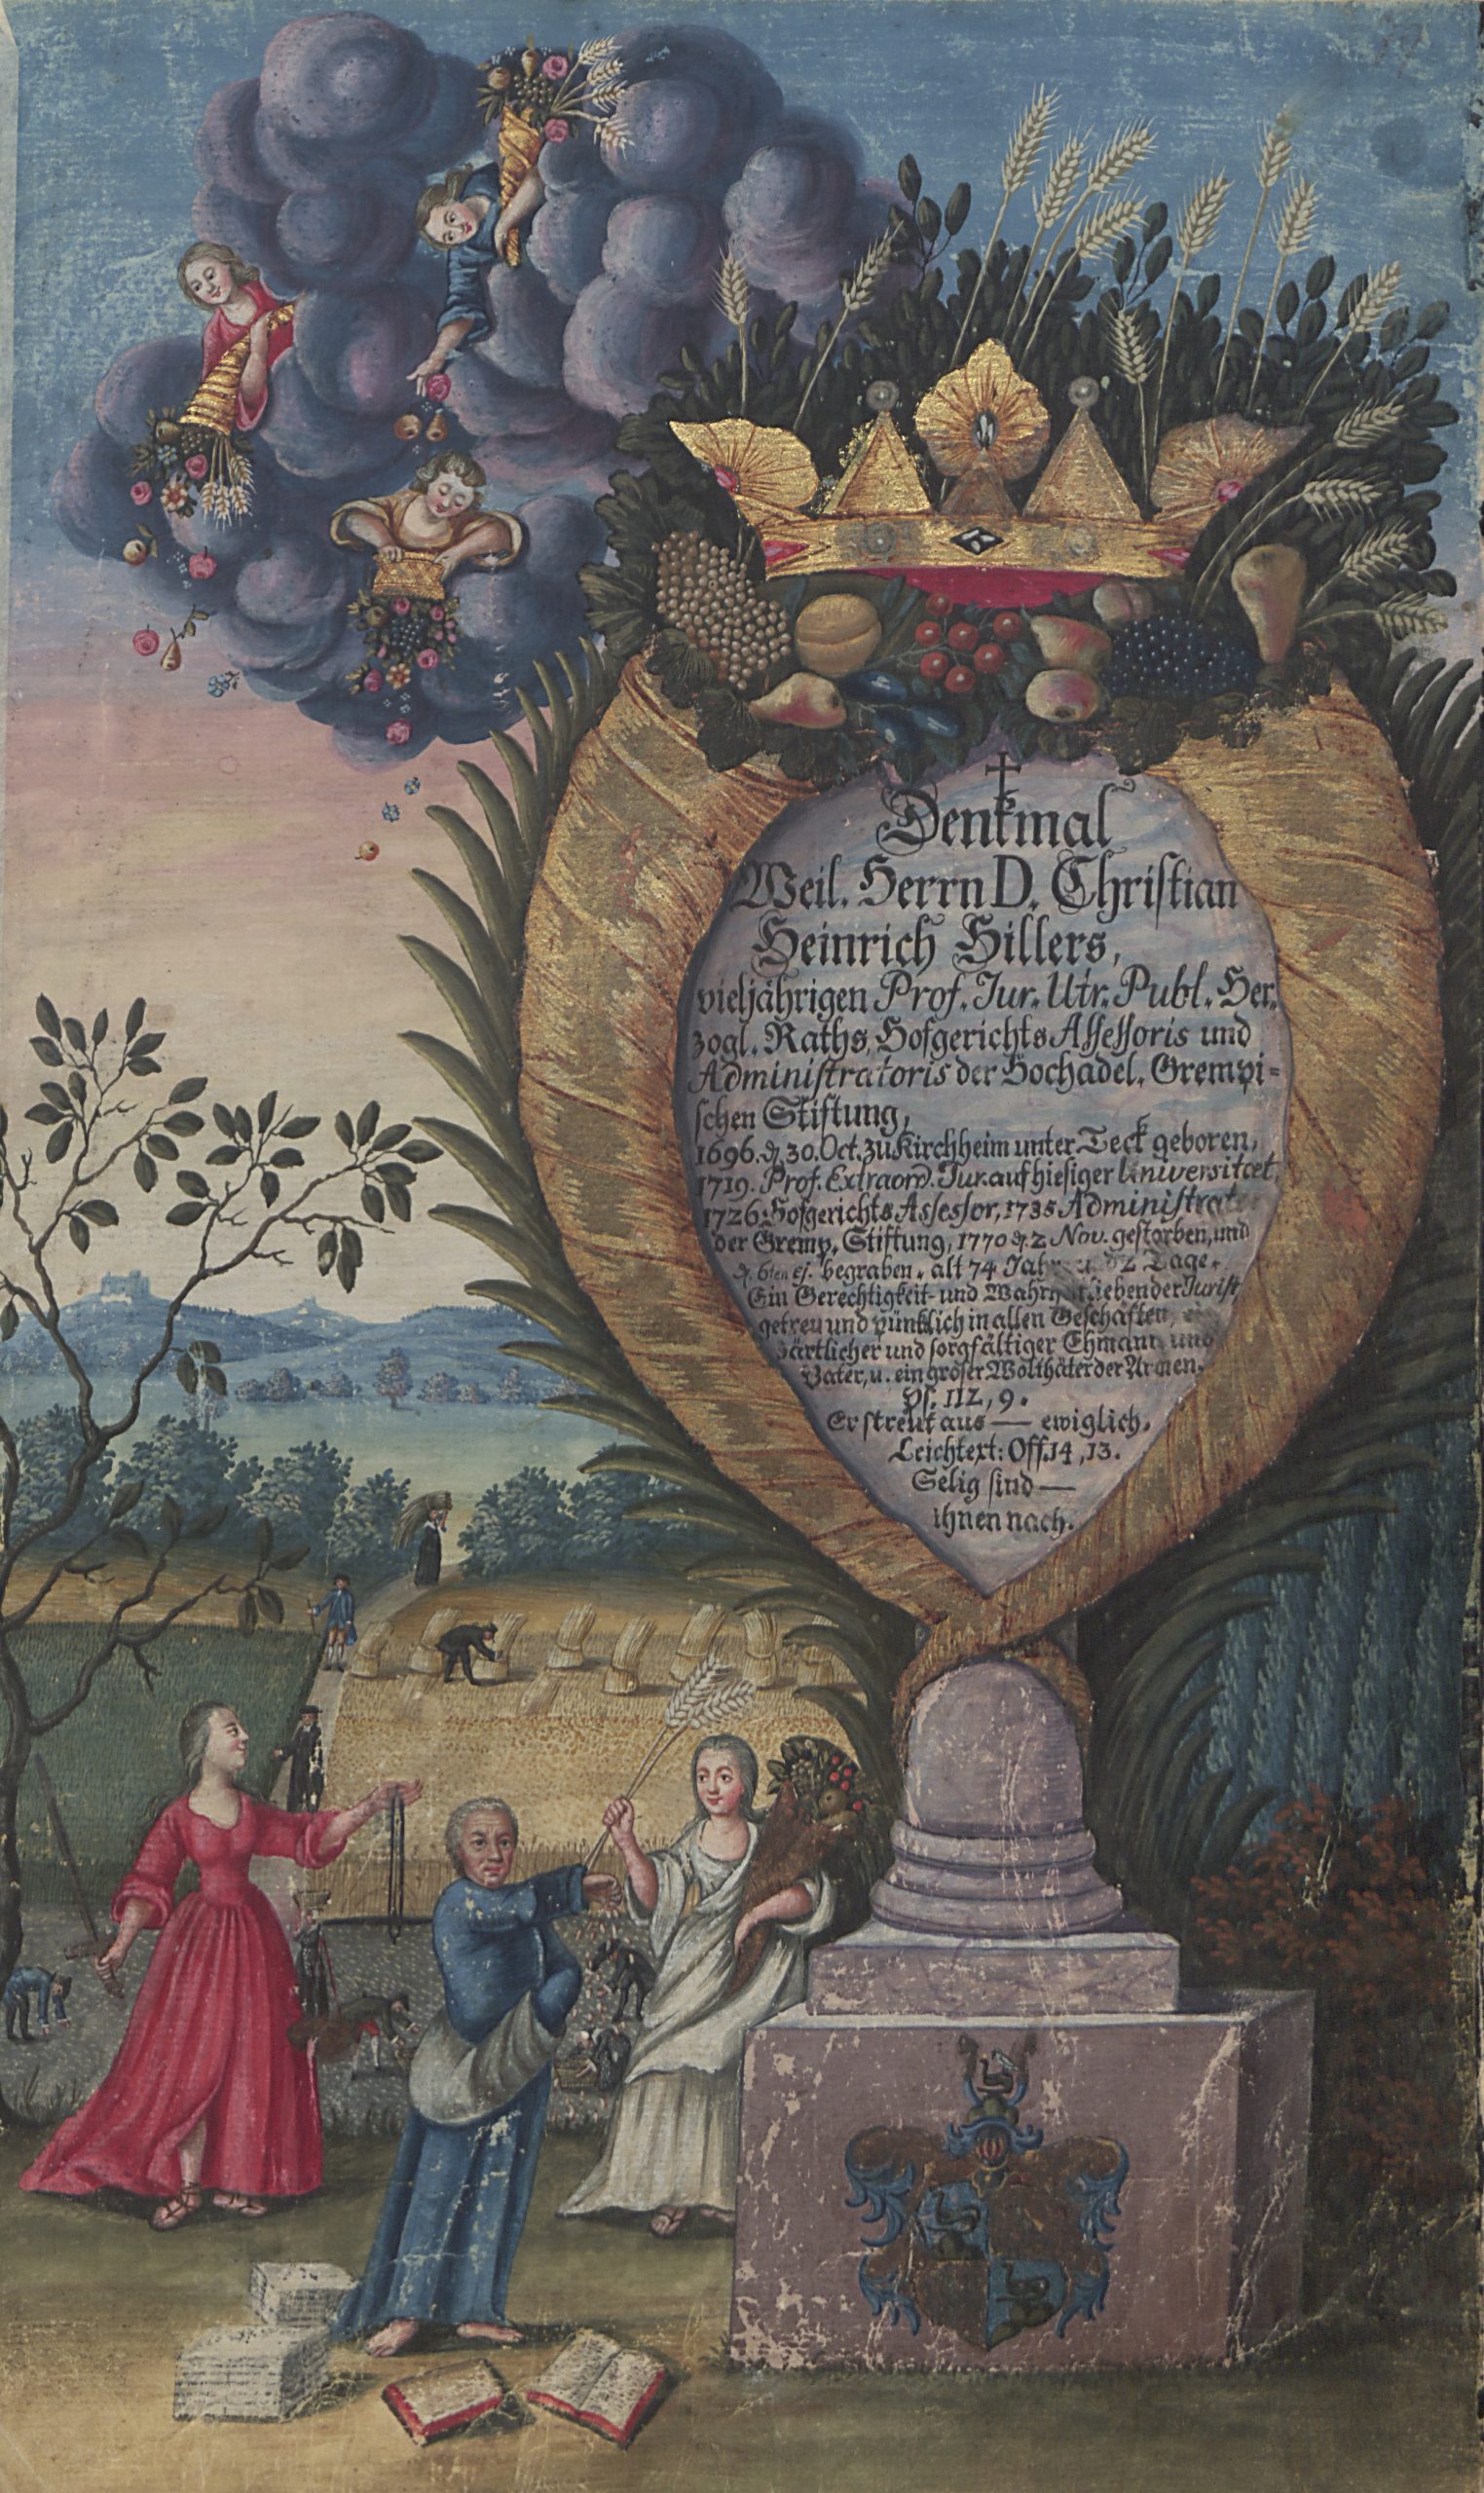 Denkmal
Weil. Herrn D. Christian
Heinrich Hillers,
vieljährigen Prof. Jur. Utr. Publ. Her-
zogl. Raths, Hofgerichts Assessoris und
Administratoris der Hochadel. Grempi-
schen Stiftung,
1696. d. 30. Oct. zu Kirchheim unter Teck geboren,
1719. Prof. Extraord. Jur. auf hiesiger Universitæt,
1726. Hofgerichts Assessor, 1735 Administrat
der Gremp. Stiftung, 1770 d. 2 Nov. gestorben, und
d. 6ten ej. begraben. alt 74 Jahr u. 2 Tage.
Ein Gerechtigkeit- und Wahrheitliebender Jurist,
getreu und pünktlich in allen Geschäften,
zärtlicher und sorgfältiger Ehmann und
Vater, u. ein groser Wolthäter der Armen.
Ps. 112, 9.
Er streut aus — ewiglich.
Leichtext: Off. 14, 13.
Selig sind —
ihnen nach.